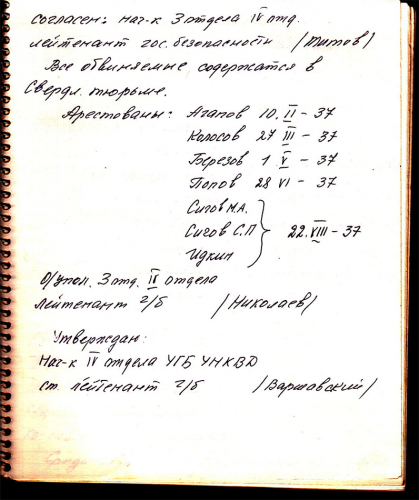 согласен: нач-к 3 отдела IV отд.
лейтенант гос. безопасности /Титов/
Все обвиняемые содержатся в
Свердл. тюрьме.
Арестованы: Агапов 10. II - 37
Колосов 27 III - 37
Березов 1 V - 37
Попов 28 VI - 37
Сигов М.А.
Сигов С.П } 22. VIII - 37
Идкин
О/упол. 3 отд. IV отдела
лейтенант г/б /Николаев/
Утверждаю:
Нач-к IV отдела УГБ УНКВД
ст. лейтенант г/б /Варшавский/